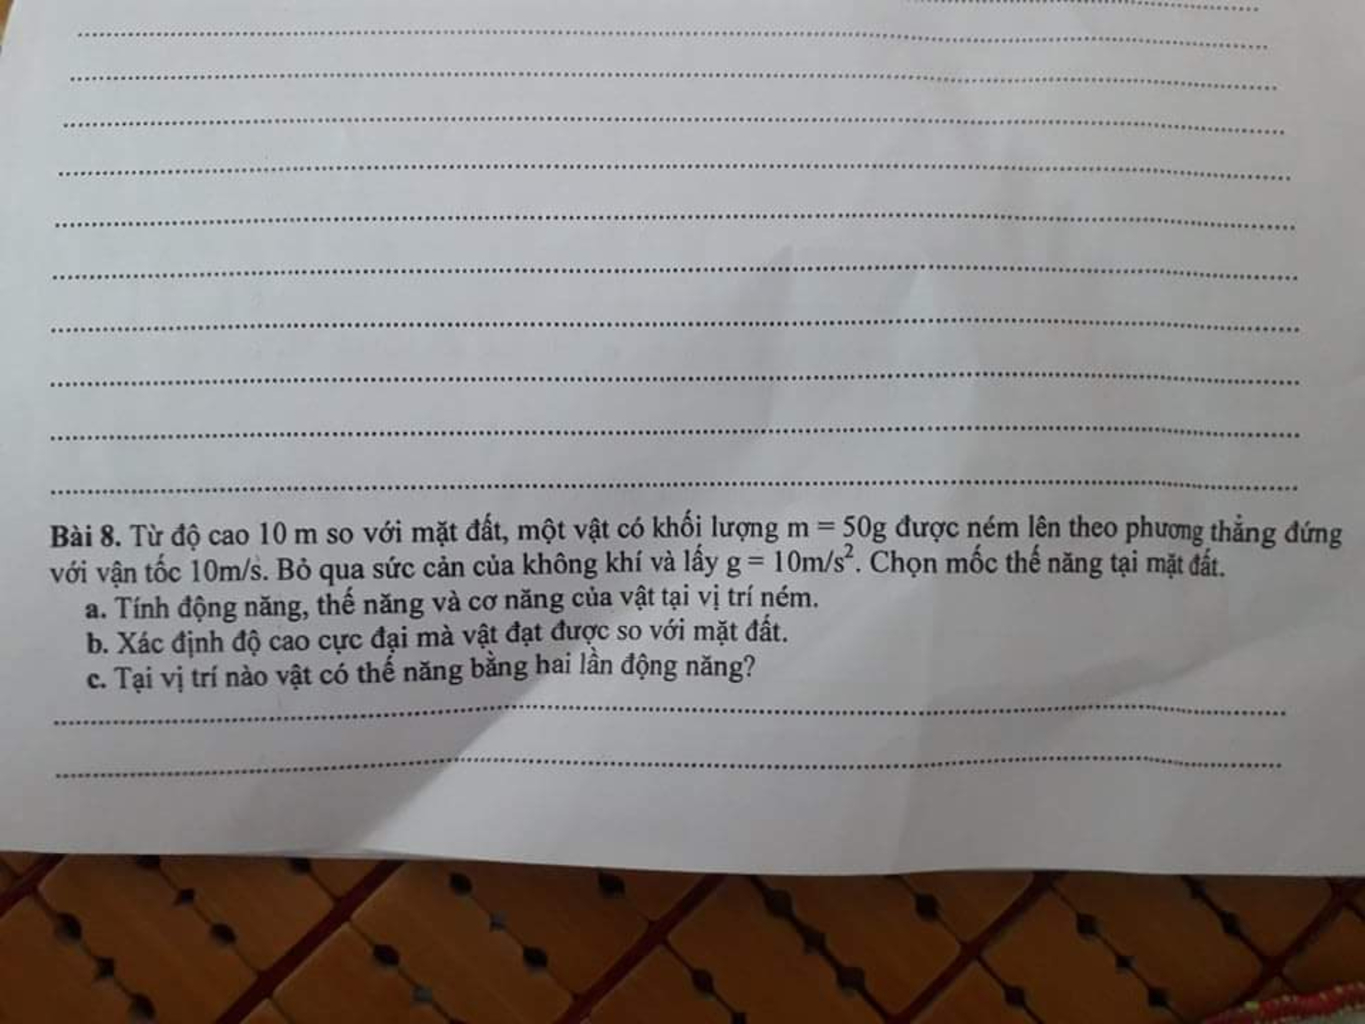 Bài 8. Từ độ cao 10 m so với mặt đất, một vật có khối lượng m = 50g được ném lên theo phương thẳng đứng
với vận tốc 10m/s. Bỏ qua sức cản của không khí và lấy g = 10m/s². Chọn mốc thế năng tại mặt đất.
a. Tính động năng, thế năng và cơ năng của vật tại vị trí ném.
b. Xác định độ cao cực đại mà vật đạt được so với mặt đất.
c. Tại vị trí nào vật có thế năng bằng hai lần động năng?